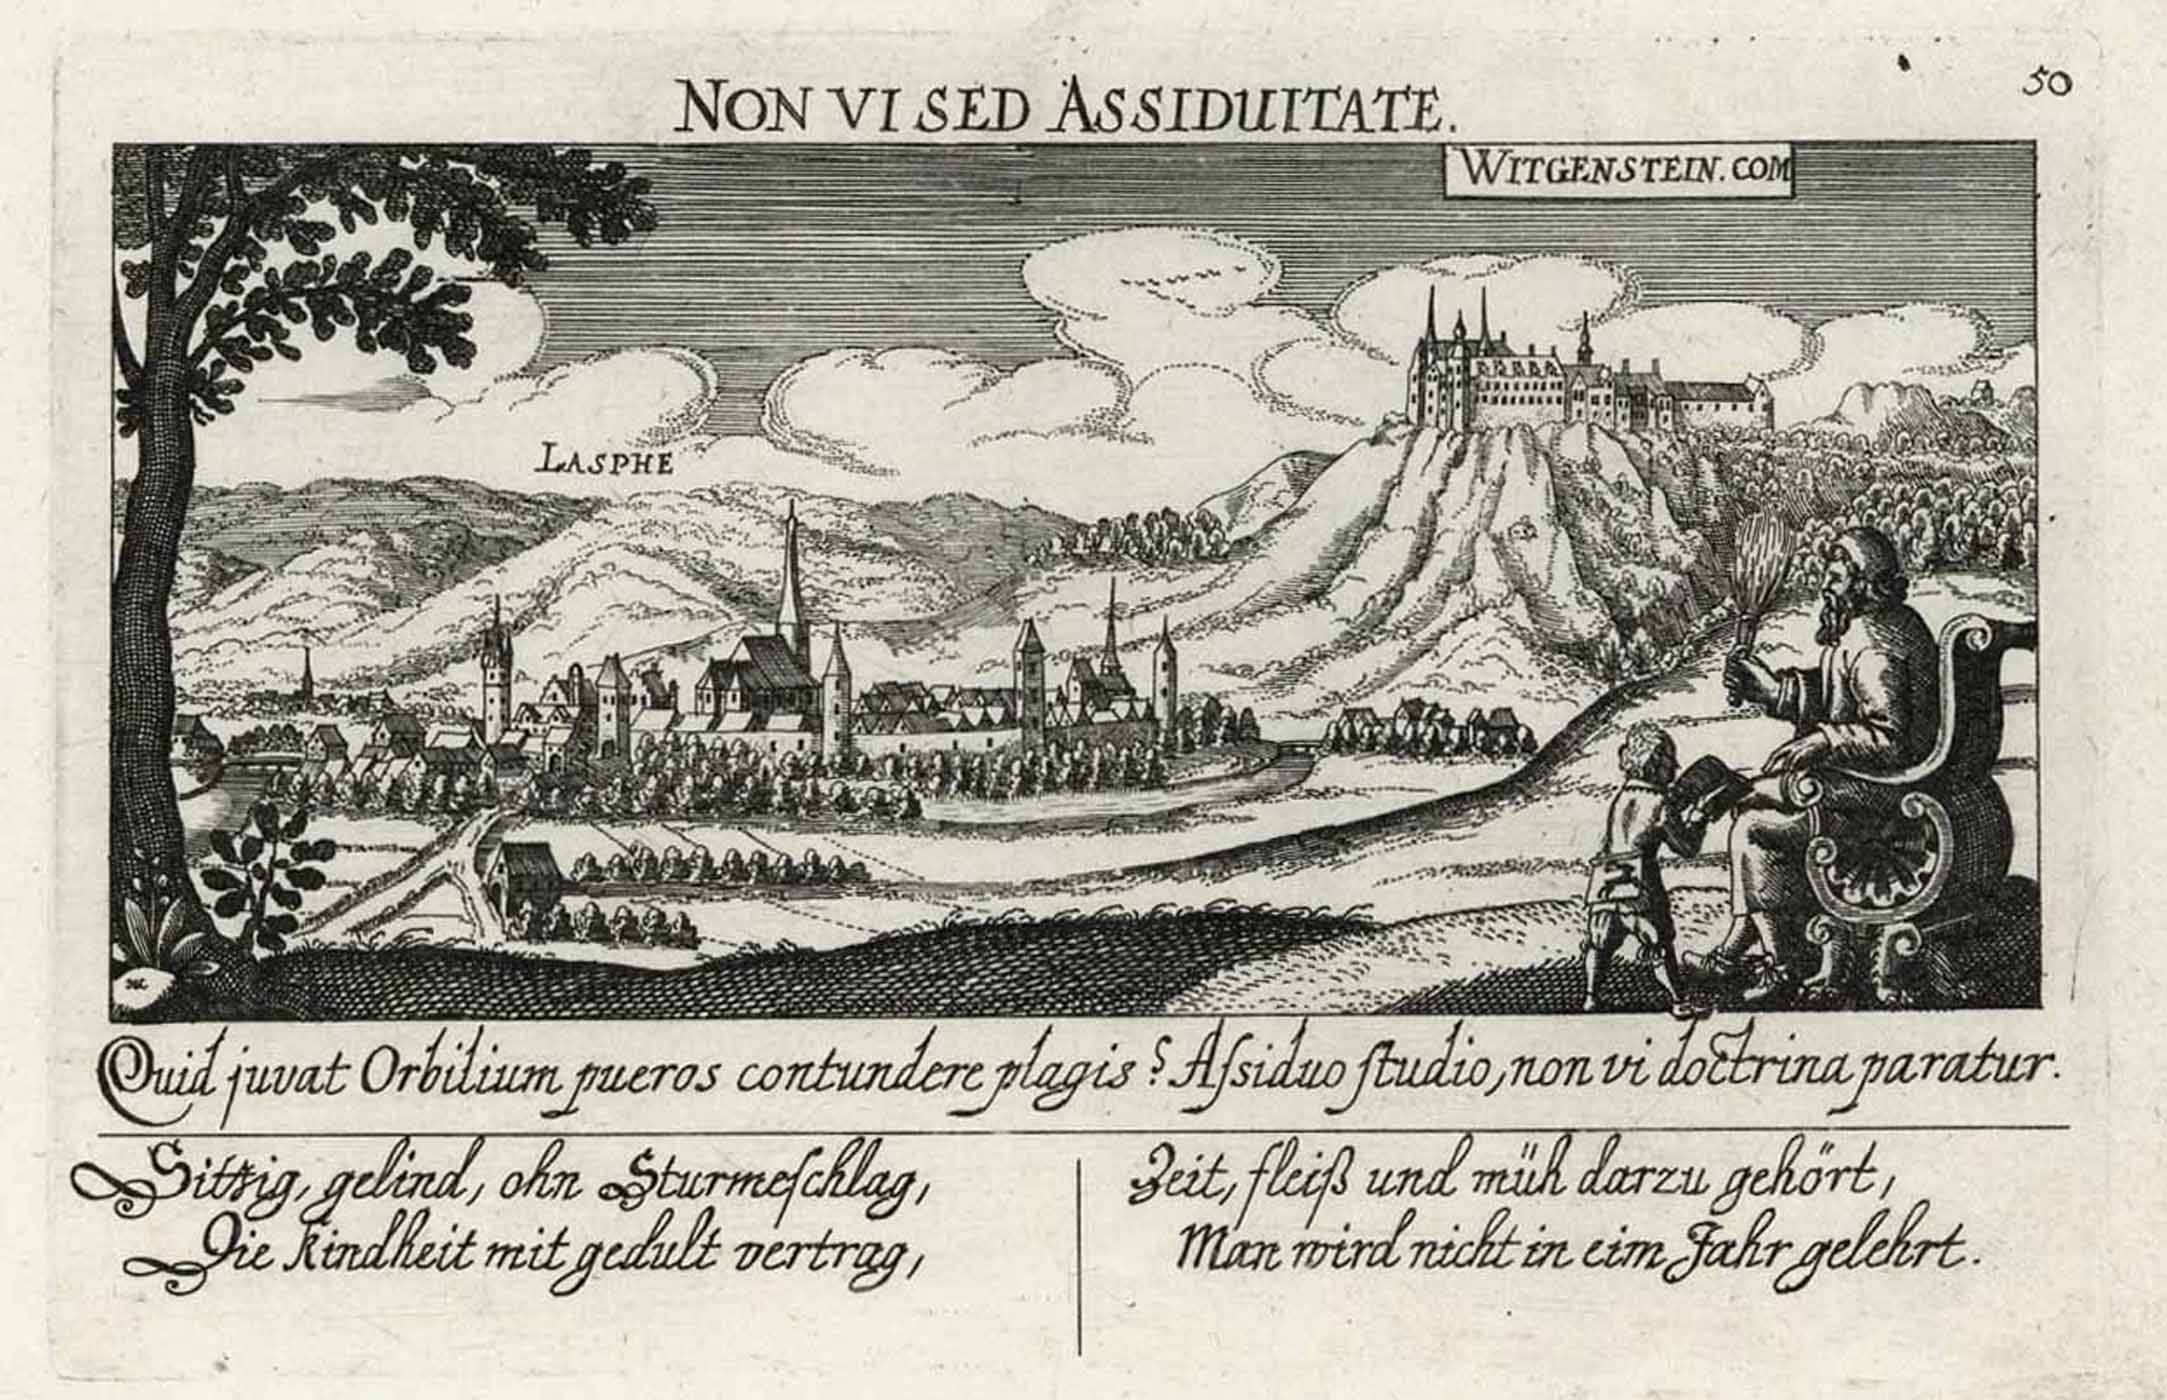 NON VI SED ASSIDUITATE.
50
WITGENSTEIN. COM
LASPHE
Quid juvat Orbilium pueros contundere plagis? Aſsiduo ſtudio, non vi doctrina paratur.
Sittzig, gelind, ohn Sturmeſchlag,
Die Kindheit mit gedult vertrag,
Zeit, fleiß und müh darzu gehört,
Man wird nicht in eim Jahr gelehrt.